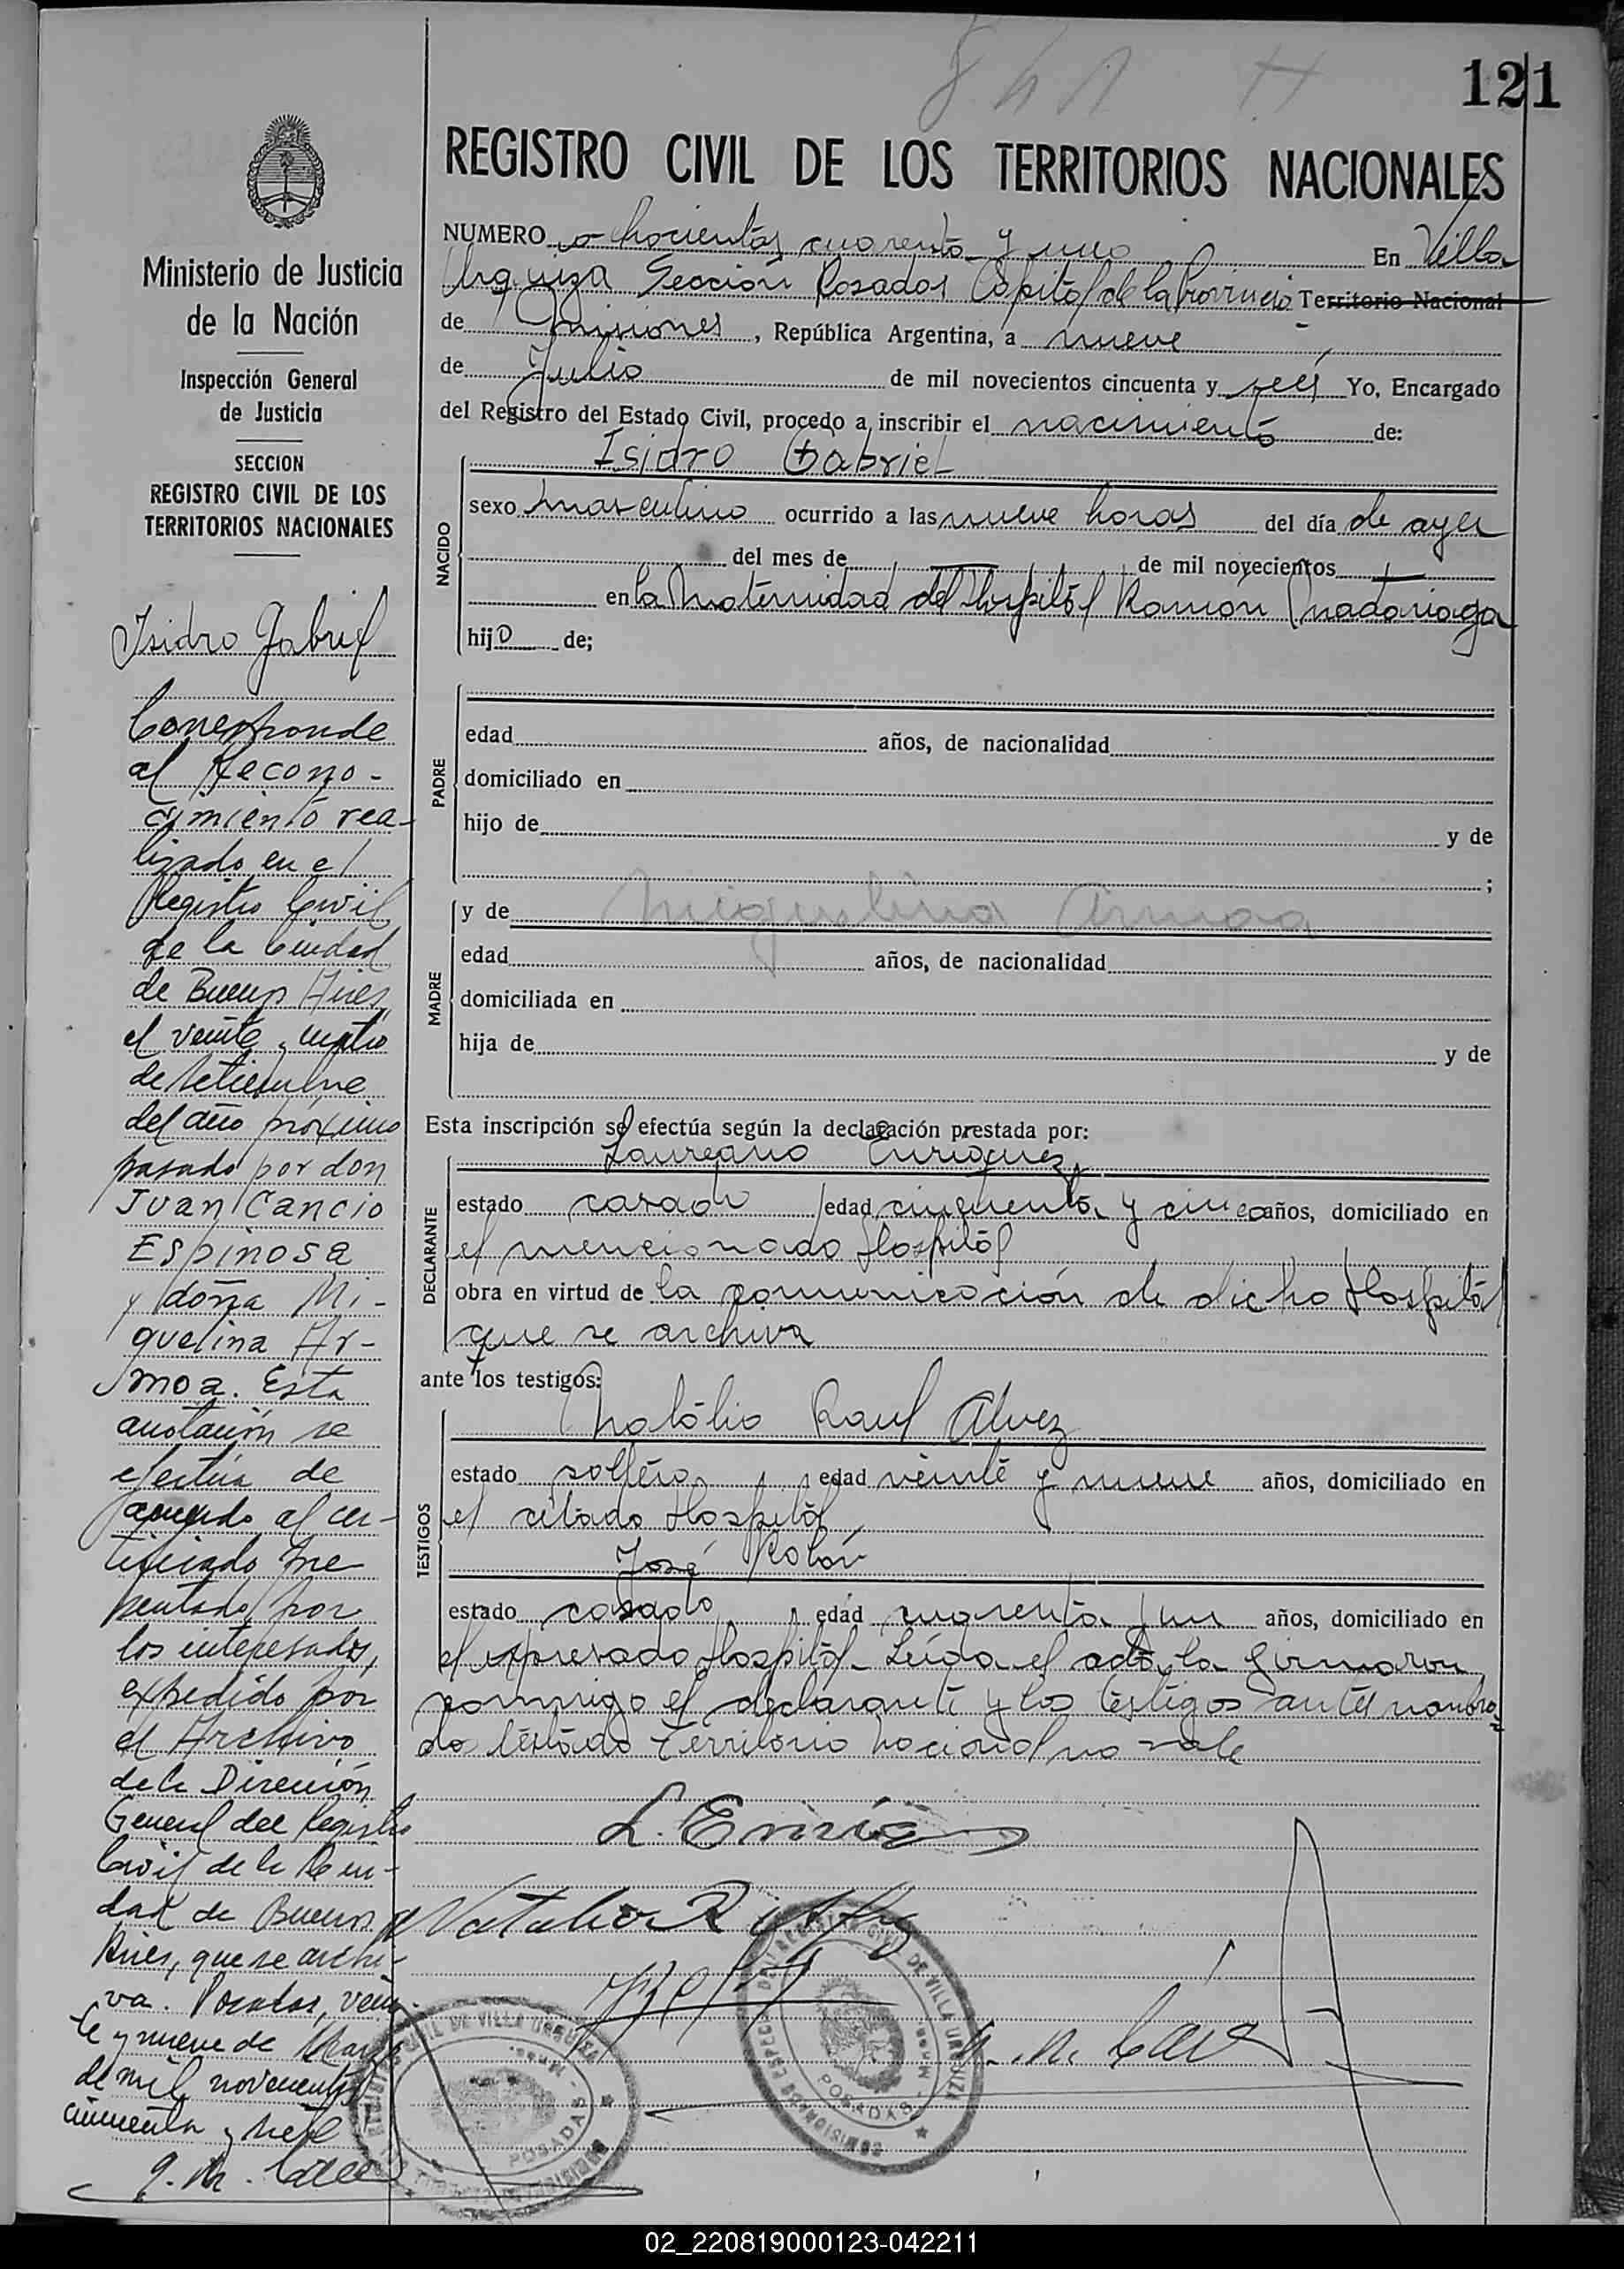 841 H
121
REGISTRO CIVIL DE LOS TERRITORIOS NACIONALES
NUMERO ochocientos cuarenta y uno En Villa
Urquiza Sección Posadas Capital de la Provincia Territorio Nacional
de Misiones, República Argentina, a nueve
de Julio de mil novecientos cincuenta y seis Yo, Encargado
del Registro del Estado Civil, procedo a inscribir el nacimiento de:
NACIDO
Isidro Gabriel
sexo masculino ocurrido a las nueve horas del día de ayer
del mes de de mil novecientos
en la Maternidad del Hospital Ramón Madariaga
hijo de;
PADRE
edad años, de nacionalidad
domiciliado en
hijo de y de
;
MADRE
y de Miguelina Armoa
edad años, de nacionalidad
domiciliada en
hija de y de
Esta inscripción se efectúa según la declaración prestada por:
DECLARANTE
Laureano Enriquez
estado casado edad cincuenta y cinco años, domiciliado en
el mencionado Hospital
obra en virtud de la comunicación de dicho Hospital
que se archiva
ante los testigos:
TESTIGOS
Natalio Raul Alvez
estado soltero edad veinte y nueve años, domiciliado en
el citado Hospital
José
estado casado edad cuarenta y un años, domiciliado en
el expresado Hospital. Leída el acta, la firmaron
conmigo el declarante y los testigos antes nombra-
dos testado Territorio Nacional no vale
Ministerio de Justicia
de la Nación
Inspección General
de Justicia
SECCION
REGISTRO CIVIL DE LOS
TERRITORIOS NACIONALES
Isidro Gabriel
Corresponde
al Recono-
cimiento rea-
lizado en el
Registro Civil
de la Ciudad
de Buenos Aires
el veinte y cuatro
de Setiembre
del año próximo
pasado por don
Juan Cancio
Espinosa
y doña Mi-
guelina Ar-
moa. Esta
anotación se
efectúa de
acuerdo al cer-
tificado pre
sentado por
los interesados,
expedido por
el Archivo
de la Dirección
General del Registro
Civil de la Ciu-
dad de Buenos
Aires, que se archi-
va. Posadas, vein-
te y nueve de Marzo
de mil novecientos
cincuenta y siete
L. Enriquez
Natalio R
VILLA URQUIZA
POSADAS
DE VILLA URQUIZA
POSADAS
02_220819000123-042211